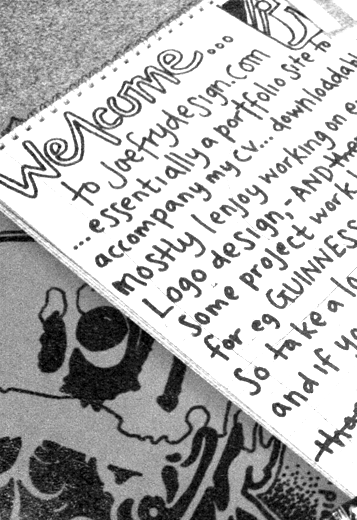 Welcome...
to joefrydesign.com
...essentially a portfolio site to
accompany my cv... downloadabl
mostly I enjoy working on
Logo design, - AND the
Some project work
for eg GUINNESS
So take a lo
and if yo